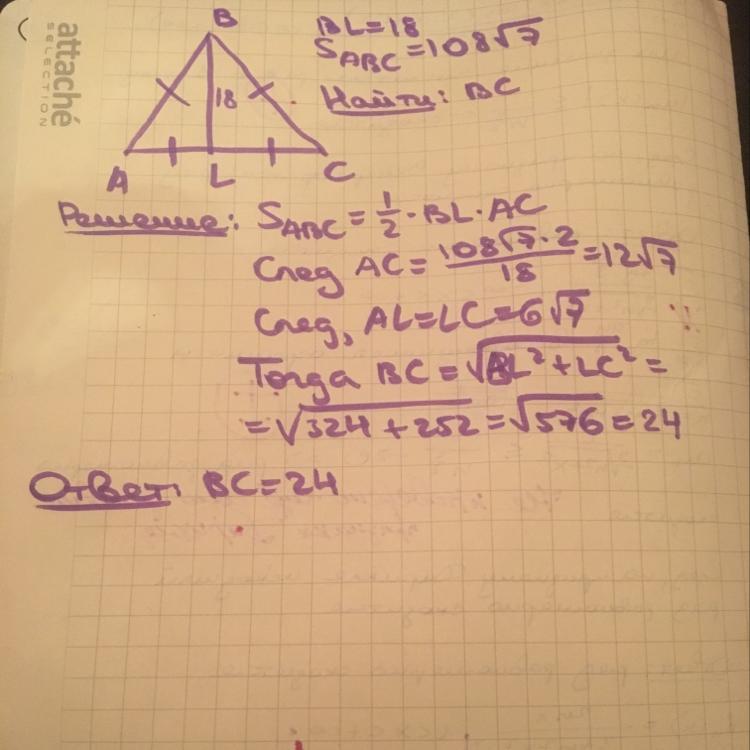 attaché
SELECTION
B
18
A L C
BL=18
S_ABC=108√7
Найти: BC
Решение: S_ABC = 1/2 · BL · AC
След AC = 108√7·2/18 = 12√7
След, AL=LC=6√7
Тогда BC = √BL²+LC² =
= √324+252 = √576 = 24
Ответ: BC=24